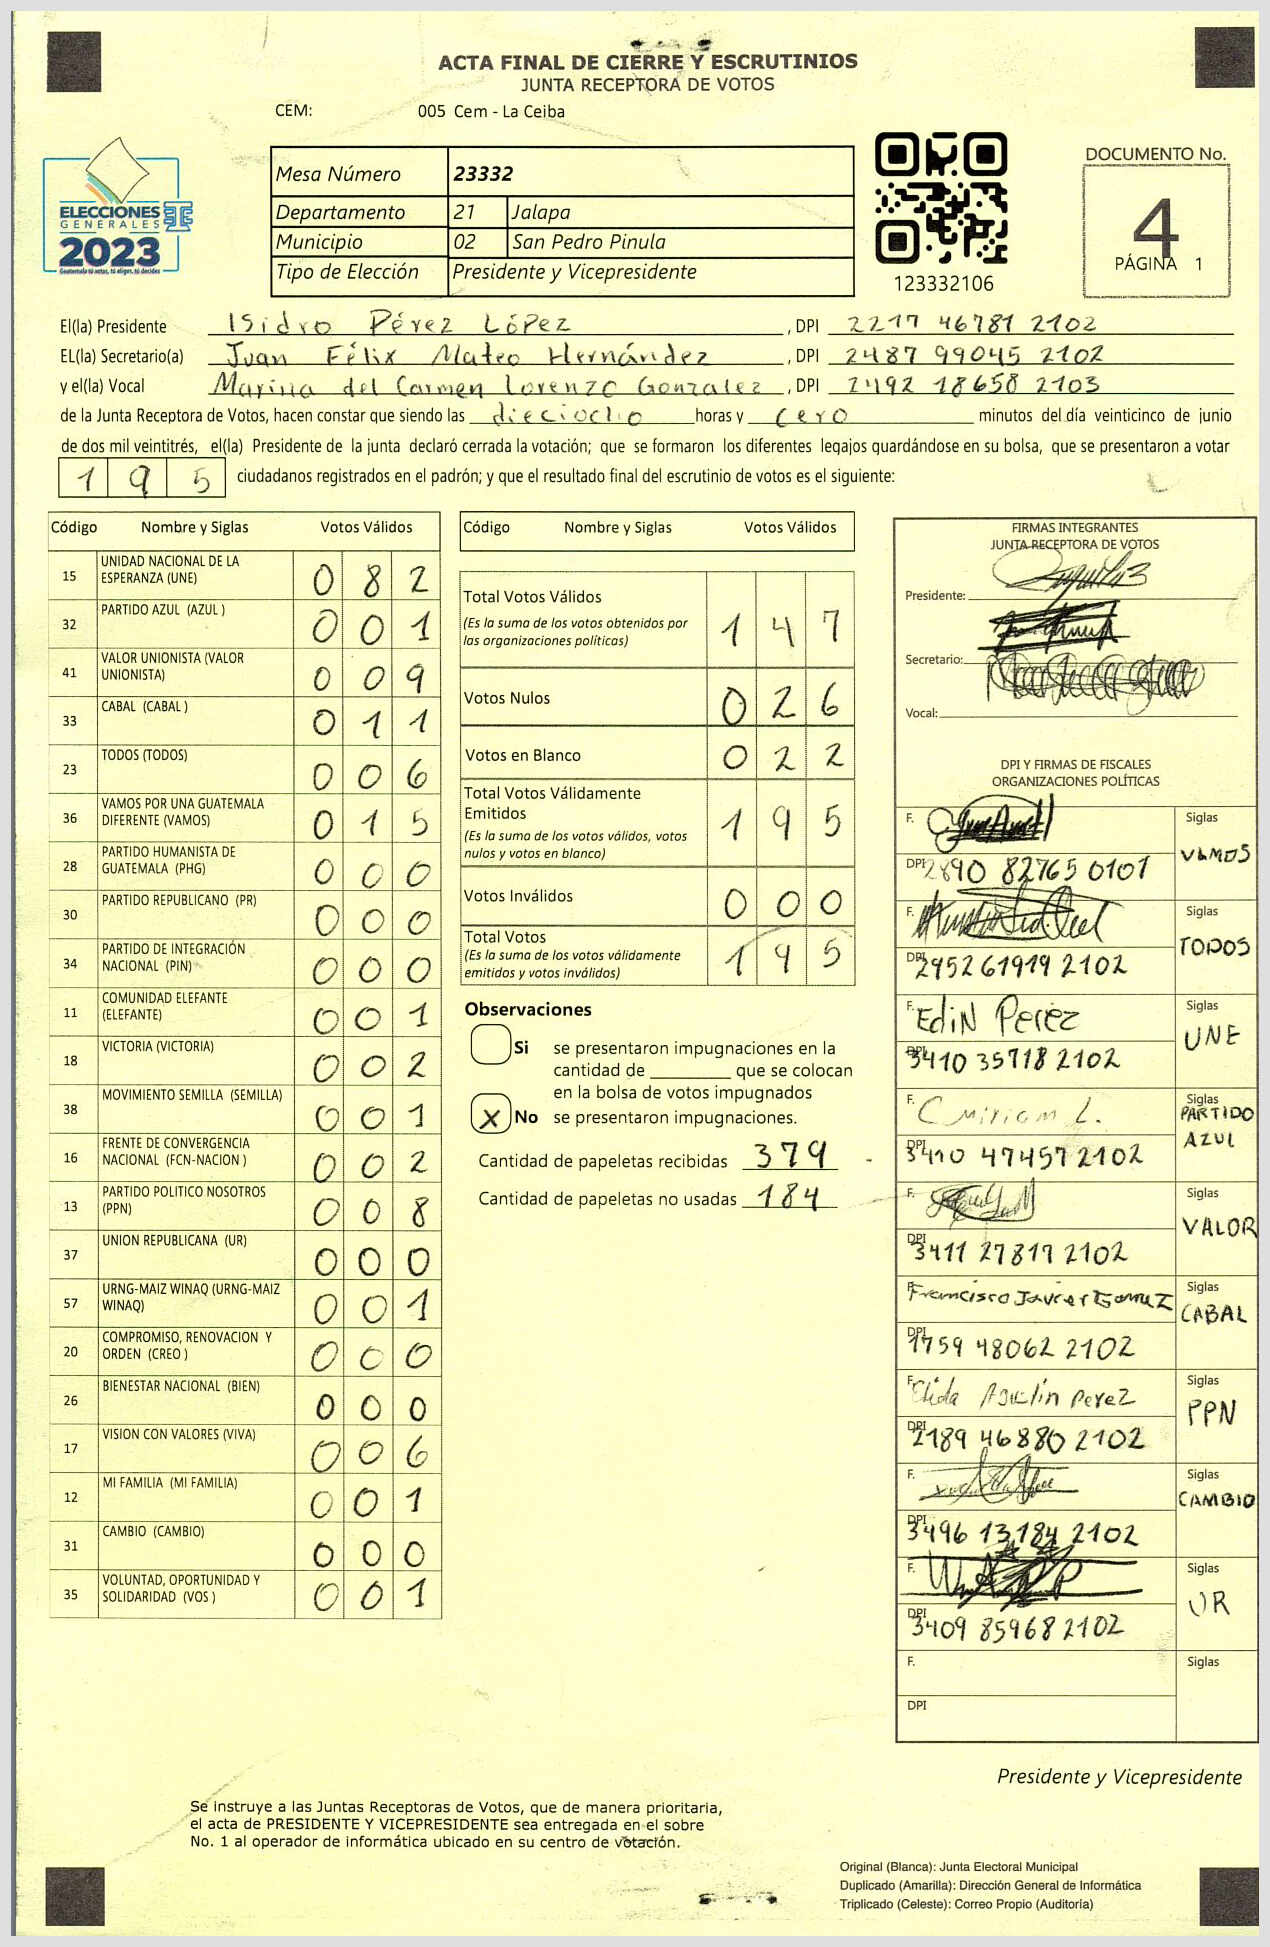 ACTA FINAL DE CIERRE Y ESCRUTINIOS
JUNTA RECEPTORA DE VOTOS
CEM: 005 Cem - La Ceiba
ELECCIONES
GENERALES
2023
Guatemala tú votas, tú eliges, tú decides
Mesa Número 23332
Departamento 21 Jalapa
Municipio 02 San Pedro Pinula
Tipo de Elección Presidente y Vicepresidente
123332106
DOCUMENTO No.
4
PÁGINA 1
El(la) Presidente Isidro Pérez López , DPI 2217 46781 2102
EL(la) Secretario(a) Juan Félix Mateo Hernández , DPI 2487 99045 2102
y el(la) Vocal Marina del Carmen Lorenzo Gonzalez , DPI 2492 18658 2103
de la Junta Receptora de Votos, hacen constar que siendo las dieciocho horas y cero minutos del día veinticinco de junio
de dos mil veintitrés, el(la) Presidente de la junta declaró cerrada la votación; que se formaron los diferentes legajos guardándose en su bolsa, que se presentaron a votar
1 9 5 ciudadanos registrados en el padrón; y que el resultado final del escrutinio de votos es el siguiente:
Código Nombre y Siglas Votos Válidos
15 UNIDAD NACIONAL DE LA ESPERANZA (UNE) 0 8 2
32 PARTIDO AZUL (AZUL ) 0 0 1
41 VALOR UNIONISTA (VALOR UNIONISTA) 0 0 9
33 CABAL (CABAL ) 0 1 1
23 TODOS (TODOS) 0 0 6
36 VAMOS POR UNA GUATEMALA DIFERENTE (VAMOS) 0 1 5
28 PARTIDO HUMANISTA DE GUATEMALA (PHG) 0 0 0
30 PARTIDO REPUBLICANO (PR) 0 0 0
34 PARTIDO DE INTEGRACIÓN NACIONAL (PIN) 0 0 0
11 COMUNIDAD ELEFANTE (ELEFANTE) 0 0 1
18 VICTORIA (VICTORIA) 0 0 2
38 MOVIMIENTO SEMILLA (SEMILLA) 0 0 1
16 FRENTE DE CONVERGENCIA NACIONAL (FCN-NACION ) 0 0 2
13 PARTIDO POLITICO NOSOTROS (PPN) 0 0 8
37 UNION REPUBLICANA (UR) 0 0 0
57 URNG-MAIZ WINAQ (URNG-MAIZ WINAQ) 0 0 1
20 COMPROMISO, RENOVACION Y ORDEN (CREO ) 0 0 0
26 BIENESTAR NACIONAL (BIEN) 0 0 0
17 VISION CON VALORES (VIVA) 0 0 6
12 MI FAMILIA (MI FAMILIA) 0 0 1
31 CAMBIO (CAMBIO) 0 0 0
35 VOLUNTAD, OPORTUNIDAD Y SOLIDARIDAD (VOS ) 0 0 1
Código Nombre y Siglas Votos Válidos
Total Votos Válidos 1 4 7
(Es la suma de los votos obtenidos por
las organizaciones políticas)
Votos Nulos 0 2 6
Votos en Blanco 0 2 2
Total Votos Válidamente
Emitidos 1 9 5
(Es la suma de los votos válidos, votos
nulos y votos en blanco)
Votos Inválidos 0 0 0
Total Votos 1 9 5
(Es la suma de los votos válidamente
emitidos y votos inválidos)
Observaciones
Si se presentaron impugnaciones en la
cantidad de ________ que se colocan
en la bolsa de votos impugnados
X No se presentaron impugnaciones.
Cantidad de papeletas recibidas 379
Cantidad de papeletas no usadas 184
FIRMAS INTEGRANTES
JUNTA RECEPTORA DE VOTOS
Presidente:
Secretario:
Vocal:
DPI Y FIRMAS DE FISCALES
ORGANIZACIONES POLÍTICAS
F. Siglas VAMOS
DPI 2890 82765 0101
F. Siglas TODOS
DPI 2952 61919 2102
F. Edin Perez Siglas UNE
DPI 3410 35718 2102
F. C miriam L. Siglas PARTIDO AZUL
DPI 3410 47457 2102
F. Siglas VALOR
DPI 3411 27817 2102
F. Francisco Javier Gomez Siglas CABAL
DPI 1759 48062 2102
F. Elida Agustin Perez Siglas PPN
DPI 2189 46880 2102
F. Siglas CAMBIO
DPI 3496 13184 2102
F. Siglas UR
DPI 3409 85968 2102
F. Siglas
DPI
Presidente y Vicepresidente
Se instruye a las Juntas Receptoras de Votos, que de manera prioritaria,
el acta de PRESIDENTE Y VICEPRESIDENTE sea entregada en el sobre
No. 1 al operador de informática ubicado en su centro de votación.
Original (Blanca): Junta Electoral Municipal
Duplicado (Amarilla): Dirección General de Informática
Triplicado (Celeste): Correo Propio (Auditoría)